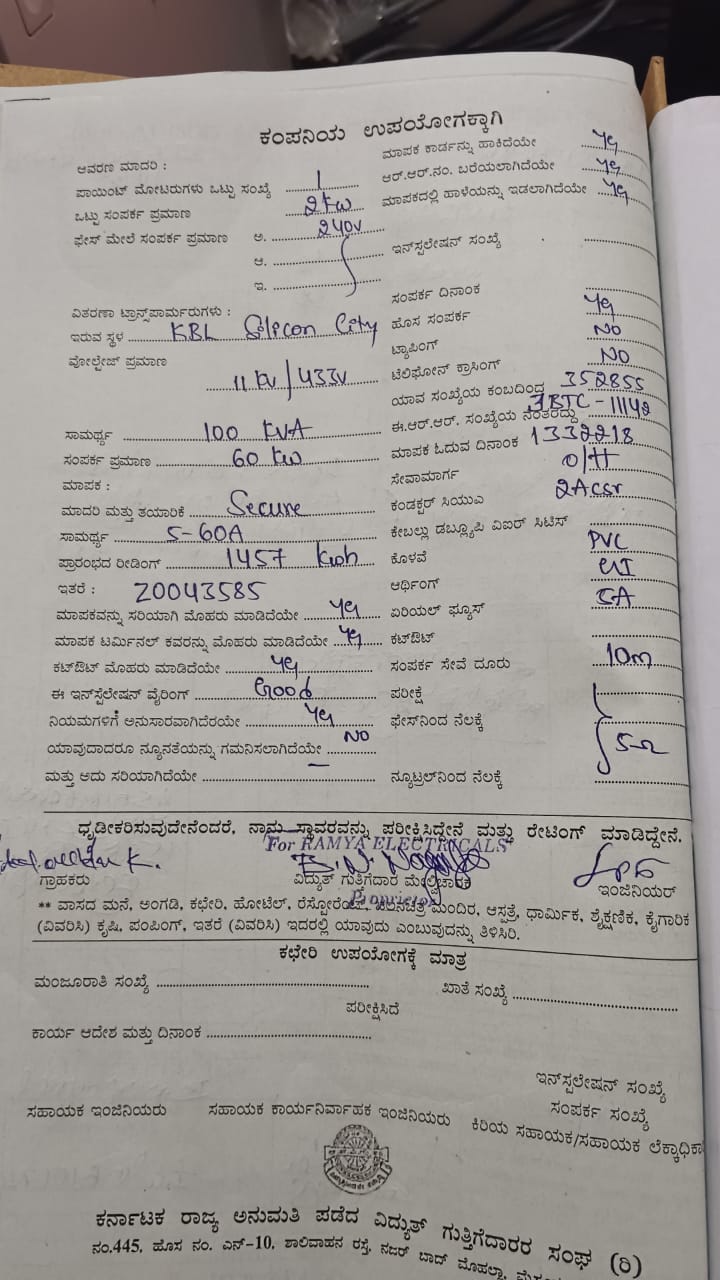 ಕಂಪನಿಯ ಉಪಯೋಗಕ್ಕಾಗಿ
ಆವರಣ ಮಾದರಿ :
ಪಾಯಿಂಟ್ ಮೋಟರುಗಳು ಒಟ್ಟು ಸಂಖ್ಯೆ 1
ಒಟ್ಟು ಸಂಪರ್ಕ ಪ್ರಮಾಣ 2kw
ಫೇಸ್ ಮೇಲೆ ಸಂಪರ್ಕ ಪ್ರಮಾಣ ಅ. 240V
ಆ.
ಇ.
ವಿತರಣಾ ಟ್ರಾನ್ಸ್‌ಫಾರ್ಮರುಗಳು :
ಇರುವ ಸ್ಥಳ KBL Silicon City
ವೋಲ್ಟೇಜ್ ಪ್ರಮಾಣ
11 KV / 433V
ಸಾಮರ್ಥ್ಯ 100 KVA
ಸಂಪರ್ಕ ಪ್ರಮಾಣ 60 KW
ಮಾಪಕ :
ಮಾದರಿ ಮತ್ತು ತಯಾರಿಕೆ Secure
ಸಾಮರ್ಥ್ಯ 5-60A
ಪ್ರಾರಂಭದ ರೀಡಿಂಗ್ 1457 kwh
ಇತರೆ : 20043585
ಮಾಪಕವನ್ನು ಸರಿಯಾಗಿ ಮೊಹರು ಮಾಡಿದೆಯೇ Yes
ಮಾಪಕ ಟರ್ಮಿನಲ್ ಕವರನ್ನು ಮೊಹರು ಮಾಡಿದೆಯೇ Yes
ಕಟ್‌ಔಟ್ ಮೊಹರು ಮಾಡಿದೆಯೇ Yes
ಈ ಇನ್‌ಸ್ಟಲೇಷನ್ ವೈರಿಂಗ್ Good
ನಿಯಮಗಳಿಗೆ ಅನುಸಾರವಾಗಿದೆರಯೇ Yes
ಯಾವುದಾದರೂ ನ್ಯೂನತೆಯನ್ನು ಗಮನಿಸಲಾಗಿದೆಯೇ NO
ಮತ್ತು ಅದು ಸರಿಯಾಗಿದೆಯೇ —
ಮಾಪಕ ಕಾರ್ಡನ್ನು ಹಾಕಿದೆಯೇ Yes
ಆರ್.ಆರ್.ನಂ. ಬರೆಯಲಾಗಿದೆಯೇ Yes
ಮಾಪಕದಲ್ಲಿ ಹಾಳೆಯನ್ನು ಇಡಲಾಗಿದೆಯೇ Yes
ಇನ್‌ಸ್ಪಲೇಷನ್ ಸಂಖ್ಯೆ
ಸಂಪರ್ಕ ದಿನಾಂಕ
ಹೊಸ ಸಂಪರ್ಕ Yes
ಟ್ಯಾಪಿಂಗ್ NO
ಟೆಲಿಫೋನ್ ಕ್ರಾಸಿಂಗ್ NO
ಯಾವ ಸಂಖ್ಯೆಯ ಕಂಬದಿಂದ 352855
ಈ.ಆರ್.ಆರ್. ಸಂಖ್ಯೆಯ ನಂತರದ್ದು JBTC-11142
ಮಾಪಕ ಓದುವ ದಿನಾಂಕ 1332218
ಸೇವಾಮಾರ್ಗ O/H
ಕಂಡಕ್ಟರ್ ಸಿಯುಎ 2Acsr
ಕೇಬಲ್ಲು ಡಬ್ಲ್ಯೂಪಿ ವಿಐರ್ ಸಿಟಿಸ್
ಕೊಳವೆ PVC
ಆರ್ಥಿಂಗ್ GI
ಏರಿಯಲ್ ಫ್ಯೂಸ್ 5A
ಕಟ್‌ಔಟ್
ಸಂಪರ್ಕ ಸೇವೆ ದೂರು 10m
ಪರೀಕ್ಷೆ
ಫೇಸ್‌ನಿಂದ ನೆಲಕ್ಕೆ 5-Ω
ನ್ಯೂಟ್ರಲ್‌ನಿಂದ ನೆಲಕ್ಕೆ
ಧೃಡೀಕರಿಸುವುದೇನೆಂದರೆ, ನಾನು ಸ್ಥಾವರವನ್ನು ಪರೀಕ್ಷಿಸಿದ್ದೇನೆ ಮತ್ತು ರೇಟಿಂಗ್ ಮಾಡಿದ್ದೇನೆ.
For RAMYA ELECTRICALS
ಗ್ರಾಹಕರು ವಿದ್ಯುತ್ ಗುತ್ತಿಗೆದಾರ ಮೇಲ್ವಿಚಾರಕ ಇಂಜಿನಿಯರ್
Proprietor
** ವಾಸದ ಮನೆ, ಅಂಗಡಿ, ಕಛೇರಿ, ಹೋಟೆಲ್, ಮಂದಿರ, ಆಸ್ಪತ್ರೆ, ಧಾರ್ಮಿಕ, ಶೈಕ್ಷಣಿಕ, ಕೈಗಾರಿಕ
(ವಿವರಿಸಿ) ಕೃಷಿ, ಪಂಪಿಂಗ್, ಇತರೆ (ವಿವರಿಸಿ) ಇದರಲ್ಲಿ ಯಾವುದು ಎಂಬುವುದನ್ನು ತಿಳಿಸಿರಿ.
ಕಛೇರಿ ಉಪಯೋಗಕ್ಕೆ ಮಾತ್ರ
ಮಂಜೂರಾತಿ ಸಂಖ್ಯೆ ಖಾತೆ ಸಂಖ್ಯೆ
ಪರೀಕ್ಷಿಸಿದೆ
ಕಾರ್ಯ ಆದೇಶ ಮತ್ತು ದಿನಾಂಕ
ಇನ್‌ಸ್ಪಲೇಷನ್ ಸಂಖ್ಯೆ
ಸಂಪರ್ಕ ಸಂಖ್ಯೆ
ಸಹಾಯಕ ಇಂಜಿನಿಯರು ಸಹಾಯಕ ಕಾರ್ಯನಿರ್ವಾಹಕ ಇಂಜಿನಿಯರು ಕಿರಿಯ ಸಹಾಯಕ/ಸಹಾಯಕ ಲೆಕ್ಕಾಧಿಕಾ
ಕರ್ನಾಟಕ ರಾಜ್ಯ ಅನುಮತಿ ಪಡೆದ ವಿದ್ಯುತ್ ಗುತ್ತಿಗೆದಾರರ ಸಂಘ (ರಿ)
ನಂ.445, ಹೊಸ ನಂ. ಎನ್-10, ಶಾಲಿವಾಹನ ರಸ್ತೆ, ನಜರ್ ಬಾದ್ ಮೊಹಲ್ಲಾ,